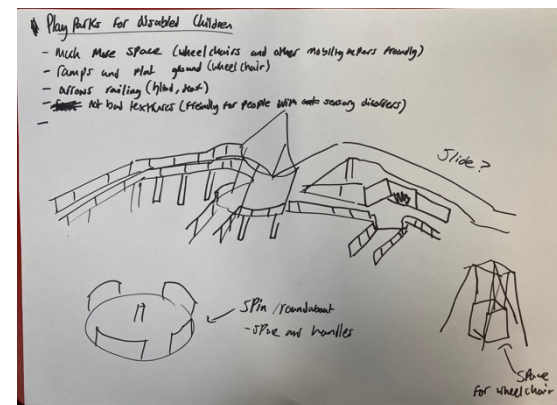 Play Parks for disabled Children
- Much more space (wheelchairs and other mobility helpers friendly)
- ramps and flat ground (wheelchair)
- arrows railing (blind, deaf)
- not bad textures (friendly for people with sensory disorders)
-
Slide?
Spin/roundabout
- space and handles
Space
for wheelchair